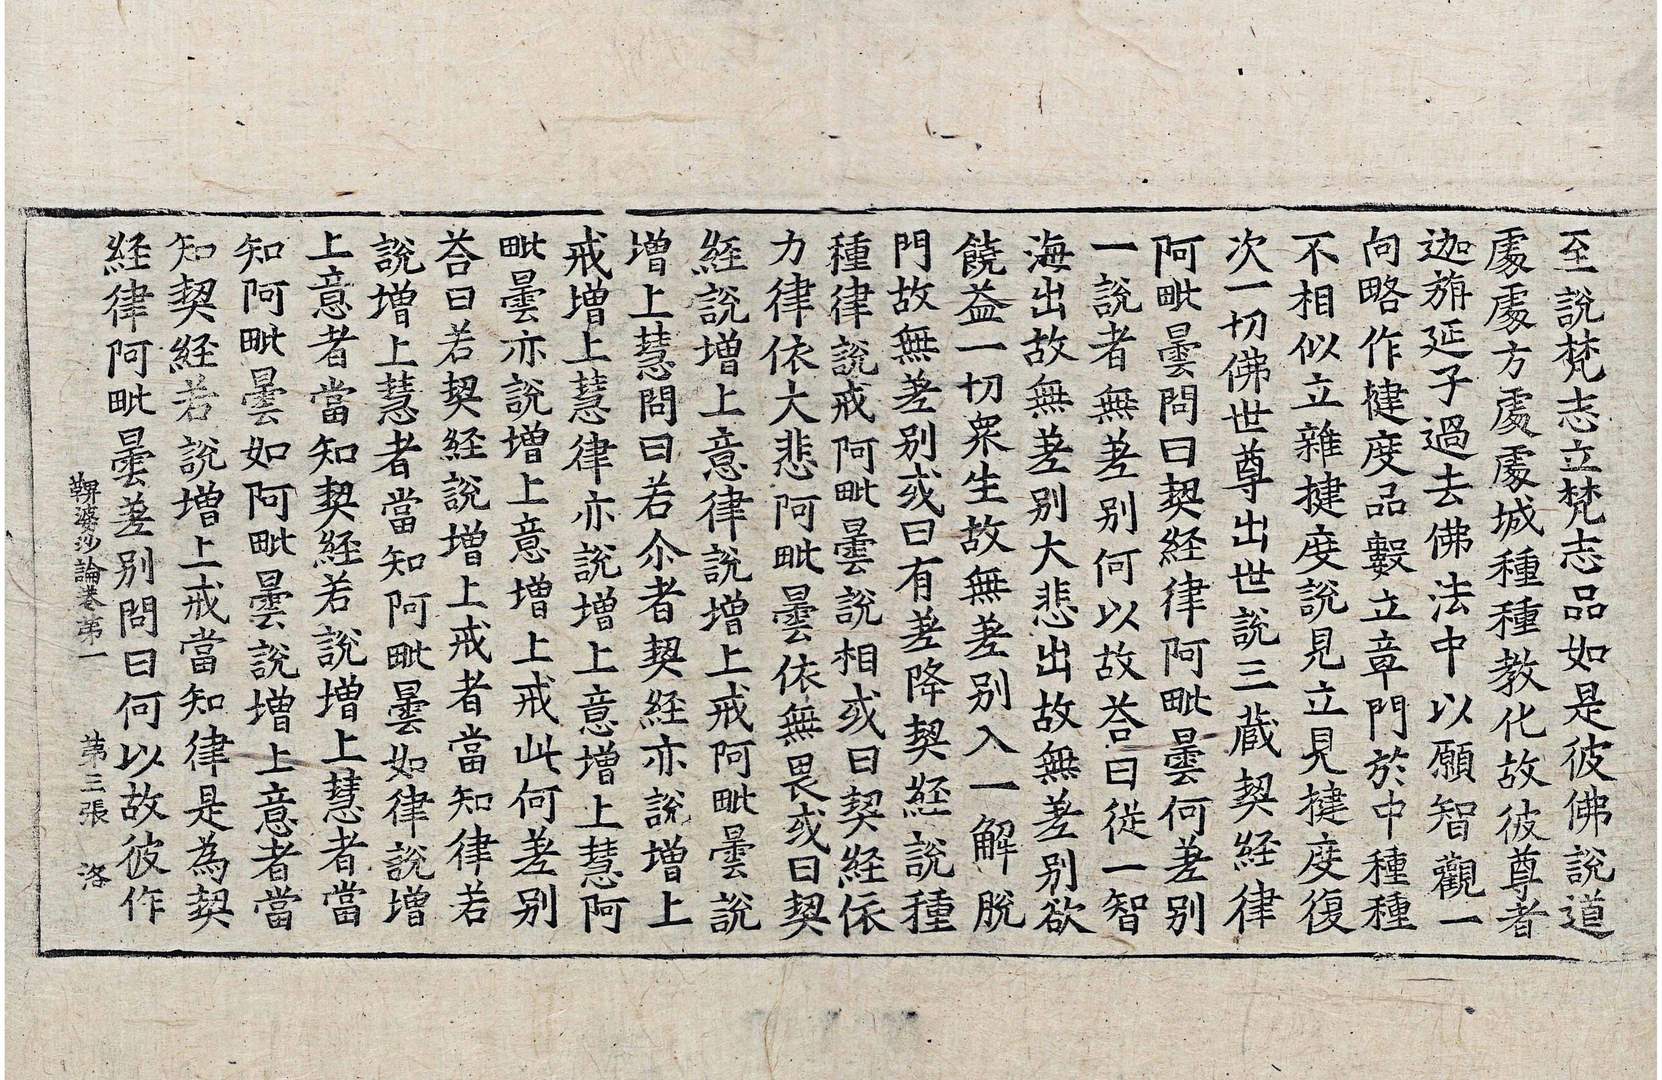 至說梵志立梵志品如是彼佛說道
處處方處處城種種教化故彼尊者
迦旃延子過去佛法中以願智觀一
向略作揵度品數立章門於中種種
不相似立雜揵度說見立見揵度復
次一切佛世尊出世說三藏契經律
阿毗曇問曰契經律阿毗曇何差別
一說者無差別何以故荅曰從一智
海出故無差別大悲出故無差別欲
饒益一切眾生故無差別入一解脫
門故無差別或曰有差降契經說種
種律說戒阿毗曇說相或曰契經依
力律依大悲阿毗曇依無畏或曰契
經說增上意律說增上戒阿毗曇說
增上慧問曰若尒者契經亦說增上
戒增上慧律亦說增上意增上慧阿
毗曇亦說增上意增上戒此何差別
荅曰若契經說增上戒者當知律若
說增上慧者當知阿毗曇如律說增
上意者當知契經若說增上慧者當
知阿毗曇如阿毗曇說增上意者當
知契經若說增上戒當知律是為契
經律阿毗曇差別問曰何以故彼作
鞞婆沙論卷第一 第三張 洛